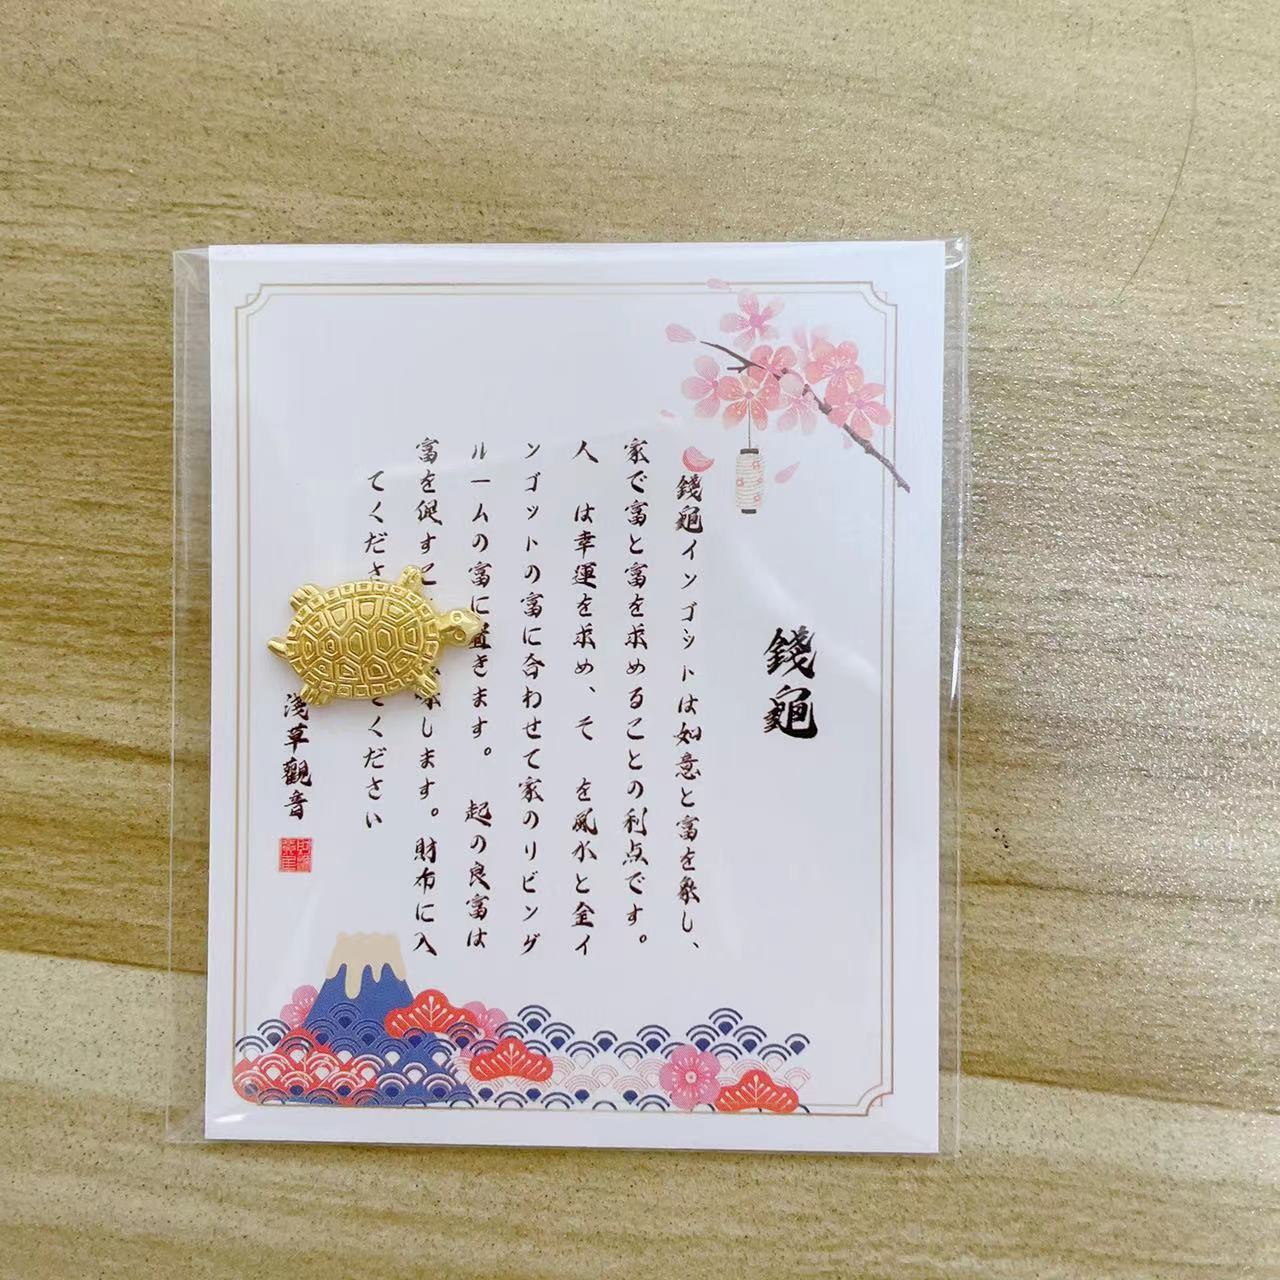 錢龜
錢龜インゴットは如意と富を象し、
家で富と富を求めることの利点です。
人 は幸運を求め、そ を風水と金イ
ンゴットの富に合わせて家のリビング
ルームの富に置きます。 起の良富は
富を促すこ します。財布に入
てくださ ください
淺草觀音